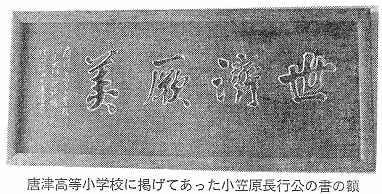 世濟厥美
唐津高等小学校に掲げてあった小笠原長行公の書の額